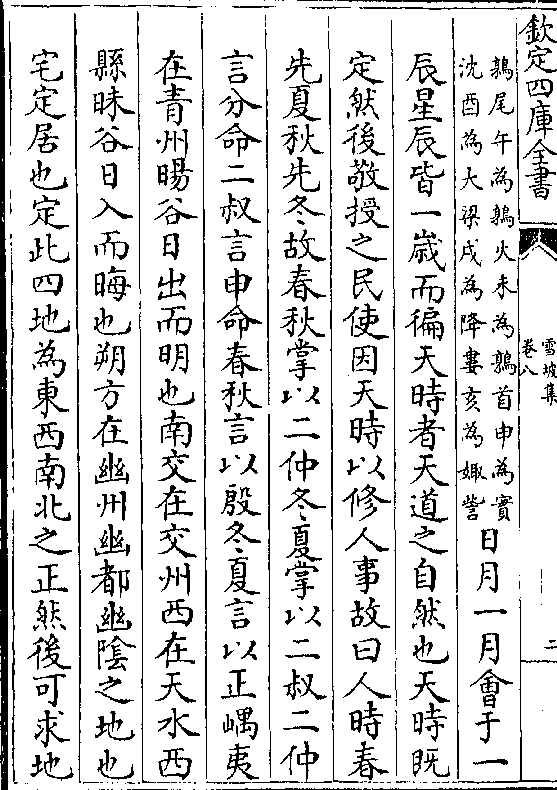 欽定四庫全書
雪坡集
卷八
二
鶉尾午為鶉火未為鶉首申為實
沈酉為大梁戌為降婁亥為娵訾
日月一月會于一
辰星辰皆一歲而徧天時者天道之自然也天時既
定然後敬授之民使因天時以修人事故曰人時春
先夏秋先冬故春秋掌以二仲冬夏掌以二叔二仲
言分命二叔言申命春秋言以殷冬夏言以正嵎夷
在青州暘谷日出而明也南交在交州西在天水西
縣昧谷日入而晦也朔方在幽州幽都幽陰之地也
宅定居也定此四地為東西南北之正然後可求地